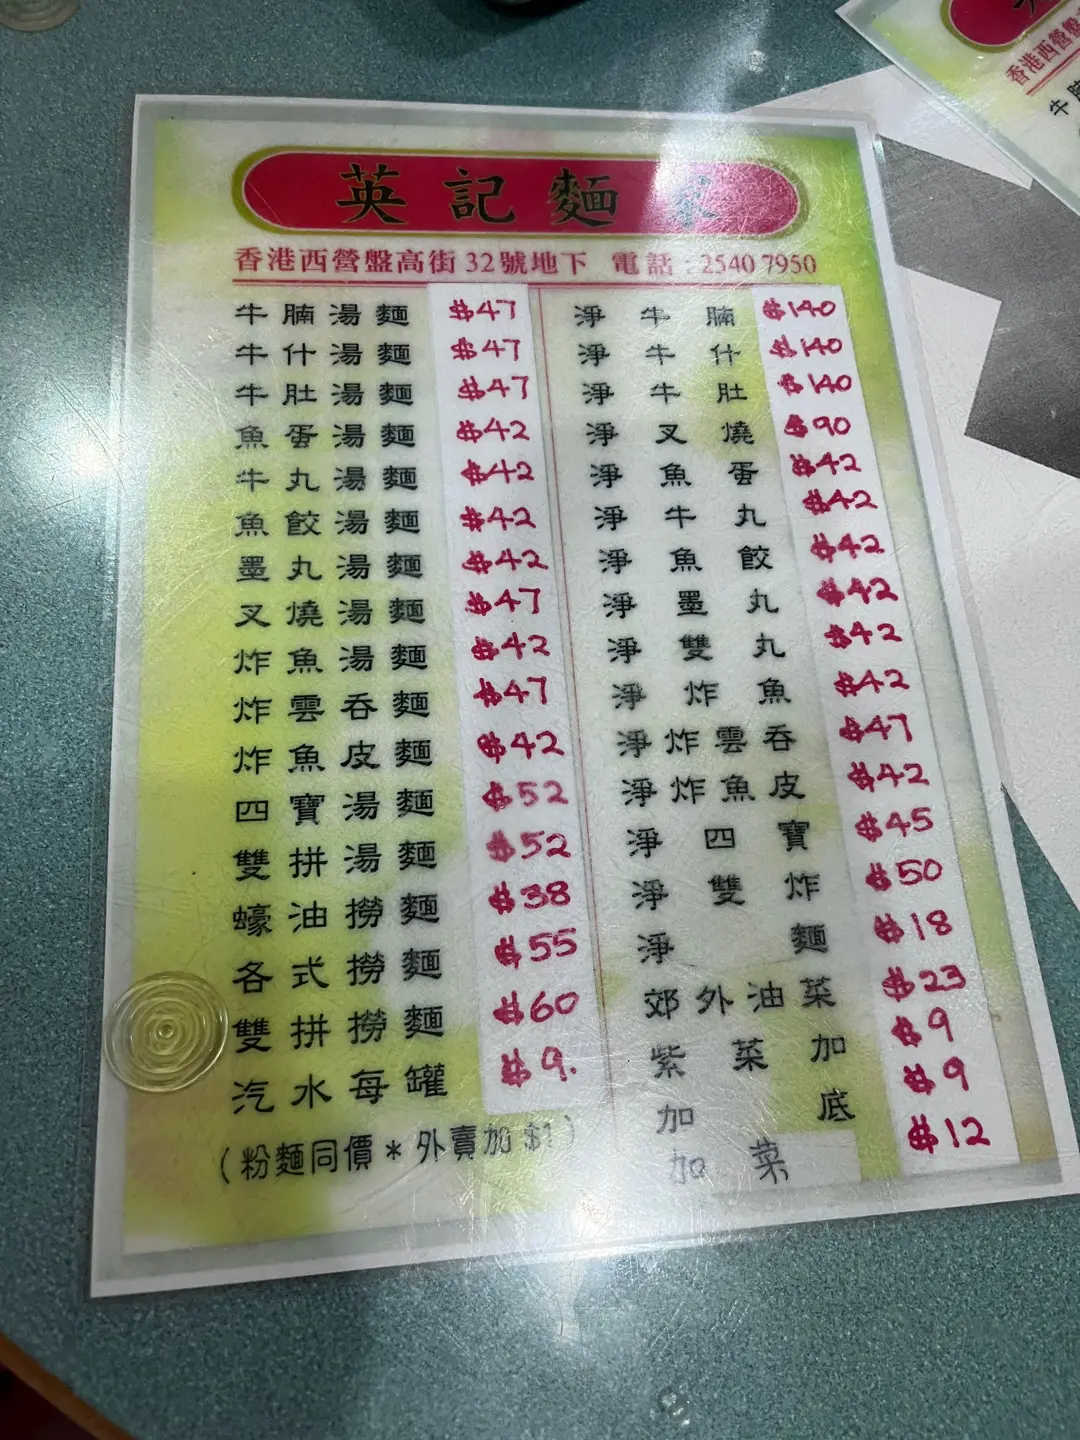 英記麵家
香港西營盤高街32號地下 電話：2540 7950
牛腩湯麵 $47
牛什湯麵 $47
牛肚湯麵 $47
魚蛋湯麵 $42
牛丸湯麵 $42
魚餃湯麵 $42
墨丸湯麵 $42
叉燒湯麵 $47
炸魚湯麵 $42
炸雲吞麵 $47
炸魚皮麵 $42
四寶湯麵 $52
雙拼湯麵 $52
蠔油撈麵 $38
各式撈麵 $55
雙拼撈麵 $60
汽水每罐 $9.
(粉麵同價*外賣加$1)
淨牛腩 $140
淨牛什 $140
淨牛肚 $140
淨叉燒 $90
淨魚蛋 $42
淨牛丸 $42
淨魚餃 $42
淨墨丸 $42
淨雙丸 $42
淨炸魚 $42
淨炸雲吞 $47
淨炸魚皮 $42
淨四寶 $45
淨雙炸 $50
淨麵 $18
郊外油菜 $23
紫菜加 $9
加底 $9
加菜 $12
香港西營盤
牛腩